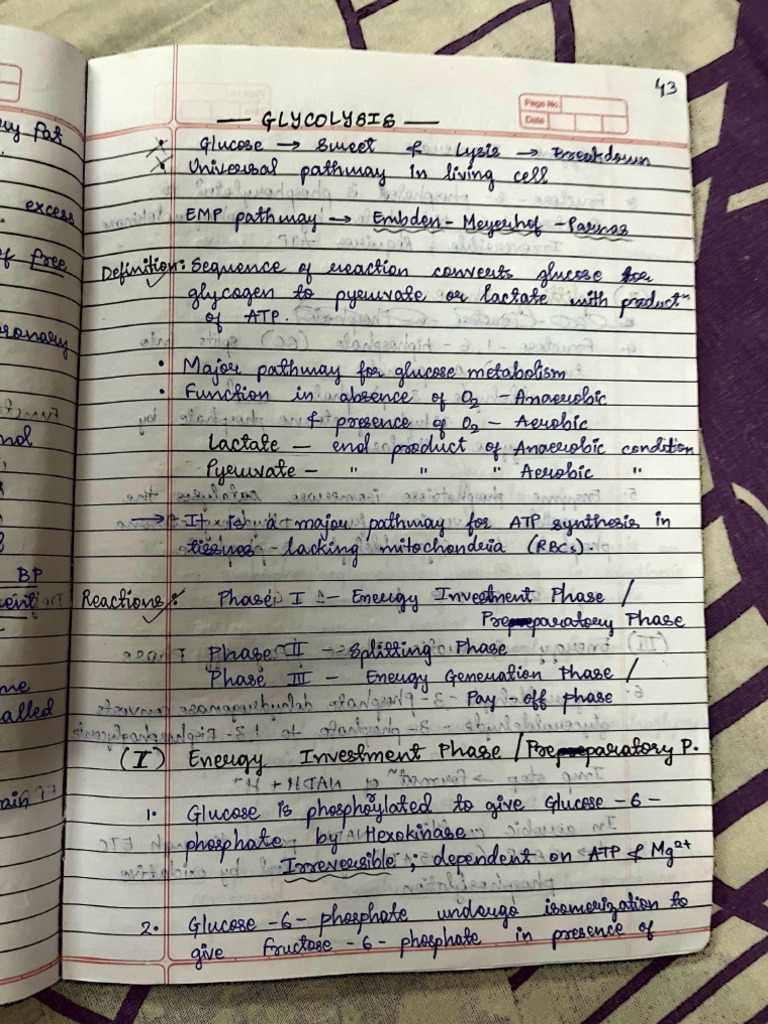 ry fat
excess
of free
ronary
nol
BP
ent
me
alled
ain
43
Page No.
Date
— GLYCOLYSIS —
Glucose → Sweet & Lysis → Breakdown
Universal pathway in living cell
EMP pathway → Embden - Meyerhof - Parnas
Definition: Sequence of reaction converts glucose for
glycogen to pyruvate or lactate with productn
of ATP.
• Major pathway for glucose metabolism
• Function in absence of O2 - Anaerobic
& presence of O2 - Aerobic
Lactate — end product of Anaerobic condition
Pyruvate - " " " Aerobic "
→ It is a major pathway for ATP synthesis in
tissues - lacking mitochondria (RBCs).
Reactions: Phase I - Energy Investment Phase /
Preparatory Phase
Phase II - Splitting Phase
Phase III - Energy Generation Phase /
Pay off phase
(I) Energy Investment Phase / Preparatory P.
1. Glucose is phosphorylated to give Glucose -6-
phosphate by Hexokinase
Irreversible ; dependent on ATP & Mg2+
2. Glucose -6- phosphate undergo isomerization to
give fructose -6- phosphate in presence of